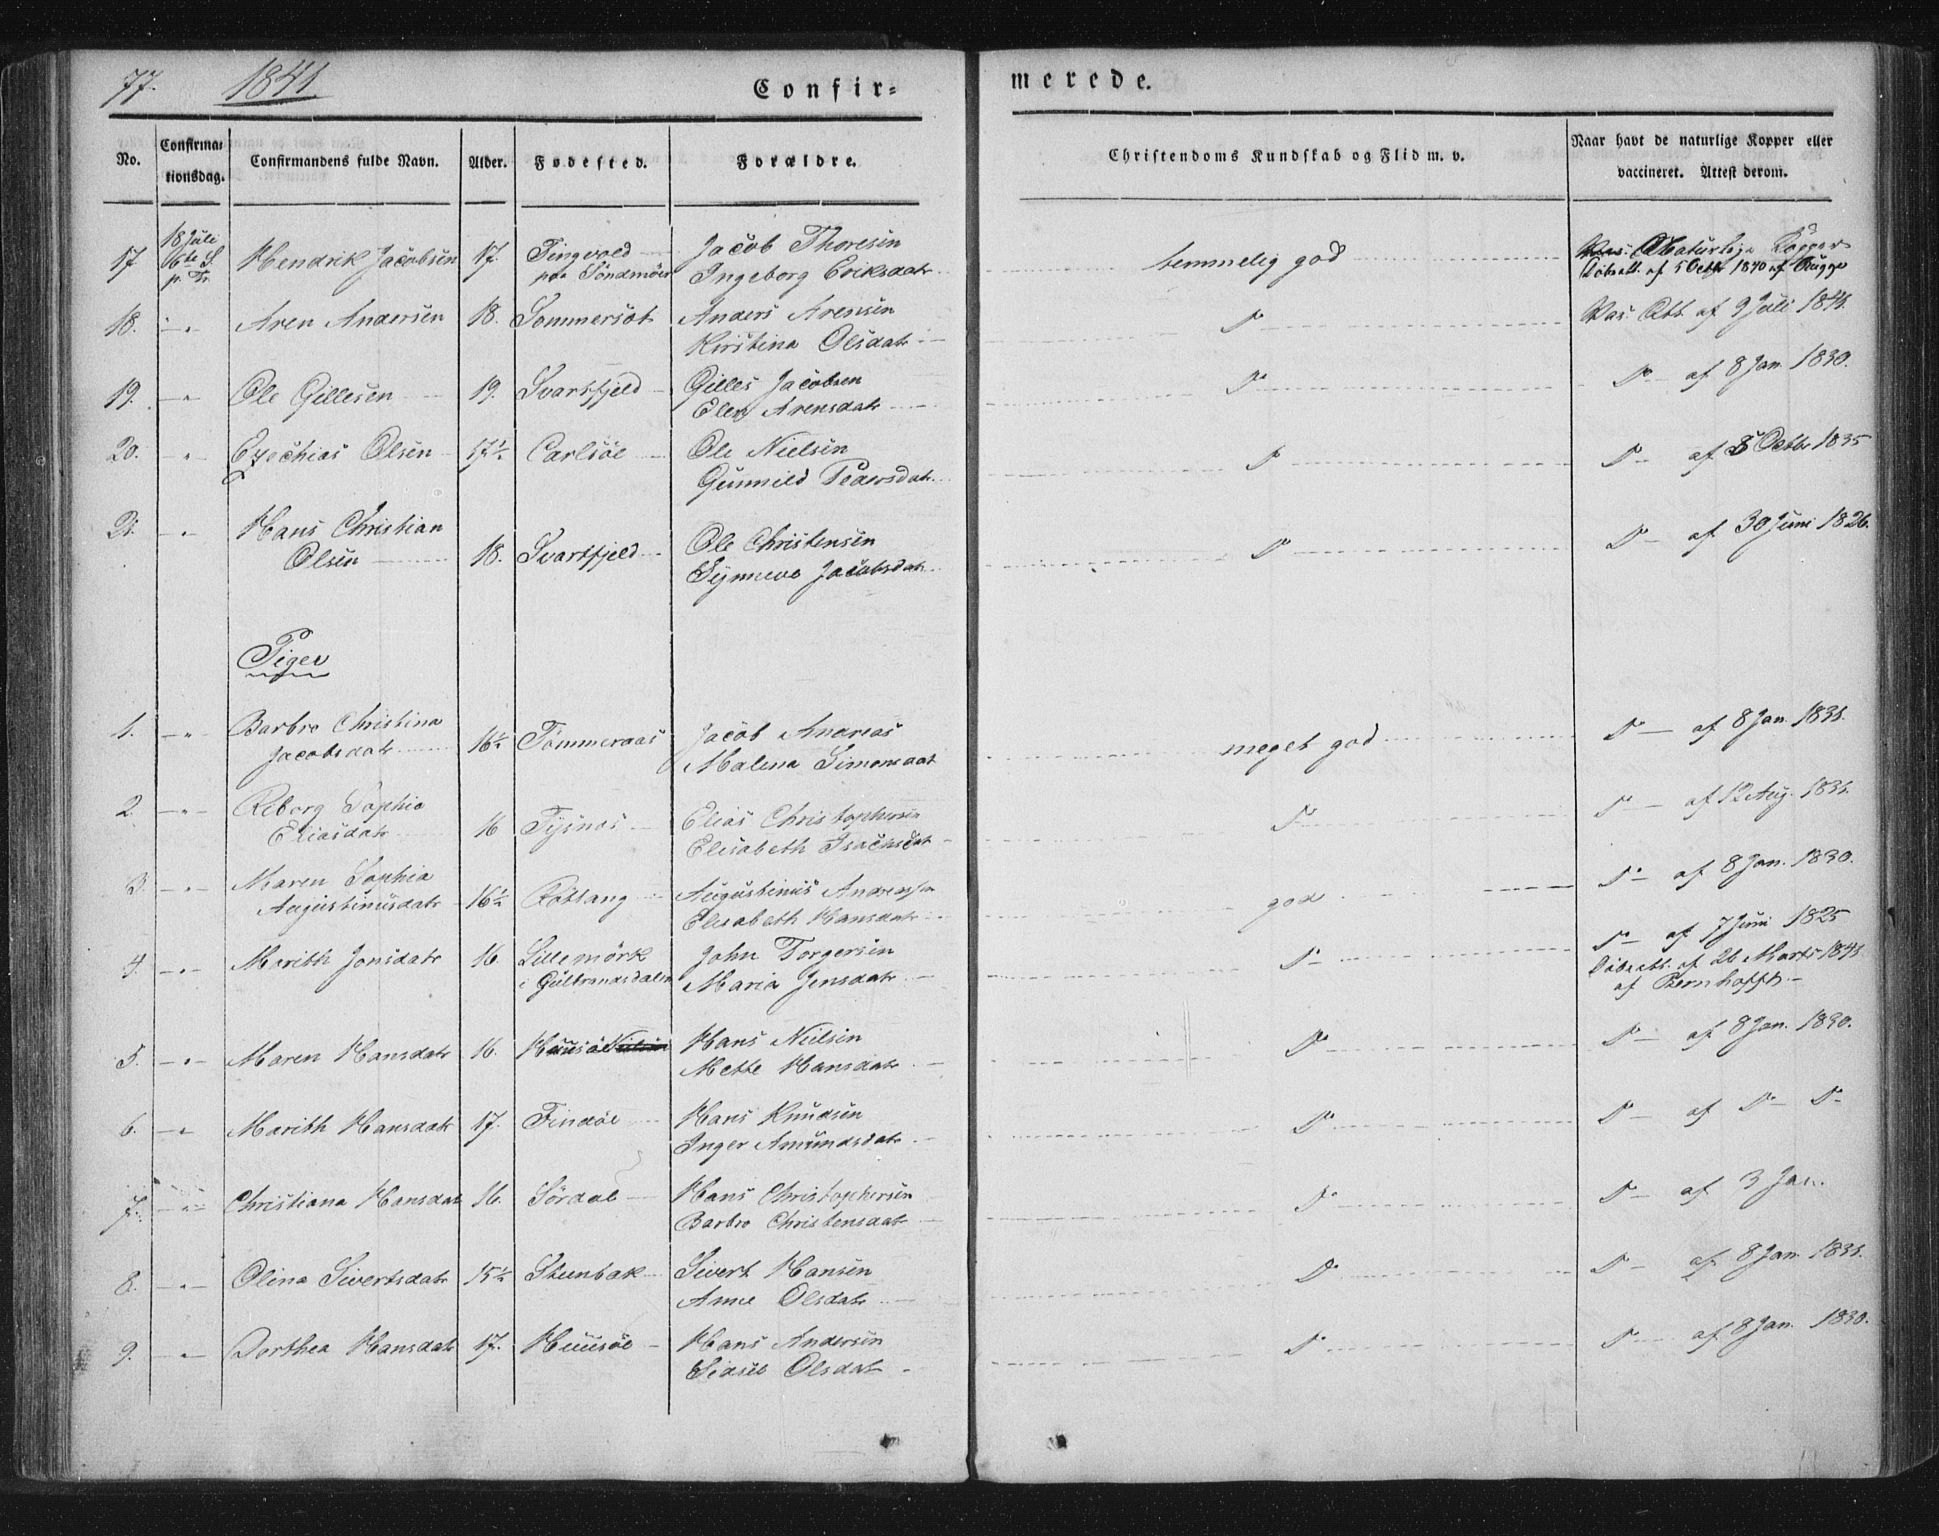 77. 1841 Confir= merede.
No. Confirma: tionsdag. Confirmandens fulde Navn. Alder. Fødested. Forældre. Christendoms Kundskab og Flid m. v. Naar havt de naturlige Kopper eller vaccineret. Attest derom.
17 18 Juli 6te S. p. Tr. Hendrik Jacobsen 17. Tingvold Jacob Thoresen temmelig god Naturlige Kopper
paa Söndmöer Ingeborg Eriksdatr Döbsatt. af 5 Octb 1840 af Bugge
18. - " Aren Andersen 18. Sommersöt Anders Arensen D Vac. Att. af 9 Juli 1841.
Kirstina Olsdatr
19. - " - Ole Gillesen 19. Svartfjeld Gilles Jacobsen D° D° - af 8 Jan. 1830.
Elen Arensdatr
20. " - Ezechias Olsen 17½ Carlsöe Ole Nielsen D D - af 8 Octbr 1835
Gunnild Pedersdatr
21. - " - Hans Christian Ole Christensen D - af 30 Juni 1826.
Olsen 18. Svartfjeld Synneve Jacobsdatr D
Piger
1. - " - Barbro Christina Jacob Andreas D - af 8 Jan. 1831.
Jacobsdatr 16½ Tömmeraas Malena Simonsdatr meget god
2. - " - Reborg Sophie Elias Christophersen D - af 12 Aug. 1831.
Eliasdatr 16 Tysnes Elisabeth Isachsdatr D
3. - " - Maren Sophia Augustinus Andreassen D - af 8 Jan. 1830.
Augustinusdatr 16½ Rötsang Elisabeth Hansdatr god
4. - " - Marith Jonsdatr 16. Lillemörk John Torgersen D - D - af 7 Juni 1825
i Gulbrandsdalen Maria Jensdatr Döbsatt. af 26 Marts 1841
af Bernhofft. -
5. - " - Maren Hansdatr 16. Huusöe Hans Nielsen D° D - af 8 Jan. 1830.
Mette Hansdatr
6. - " Marith Hansdatr 17. Tindöe Hans Knudsen D D - af D - D -
Inger Amundsdatr
7. - " - Christiana Hansdatr 16. Sördal Hans Christophersen D D - af 3 Jan.
Barbro Christensdatr
8. - " - Olina Sivertsdatr 15½ Steenbak Sivert Hansen D D - af 8 Jan 1831.
Anne Olsdatr
9. - " - Dorthea Hansdatr 17. Huusöe Hans Andersen D D - af 8 Jan. 1830.
Sidsel Olsdatr